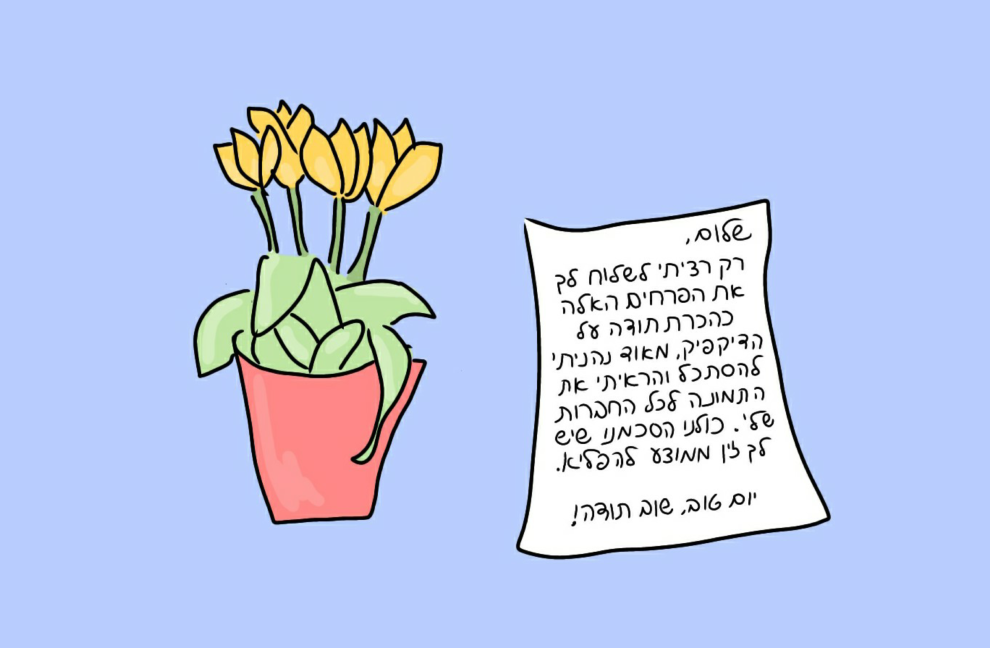 שלום,
רק רציתי לשלוח לך
את הפרחים האלה
כהכרת תודה על
הדיקפיק, מאוד נהניתי
להסתכל והראיתי את
התמונה לכל החברות
שלי. כולנו הסכמנו שיש
לך זין ממוצע להפליא.
יום טוב, שוב תודה!